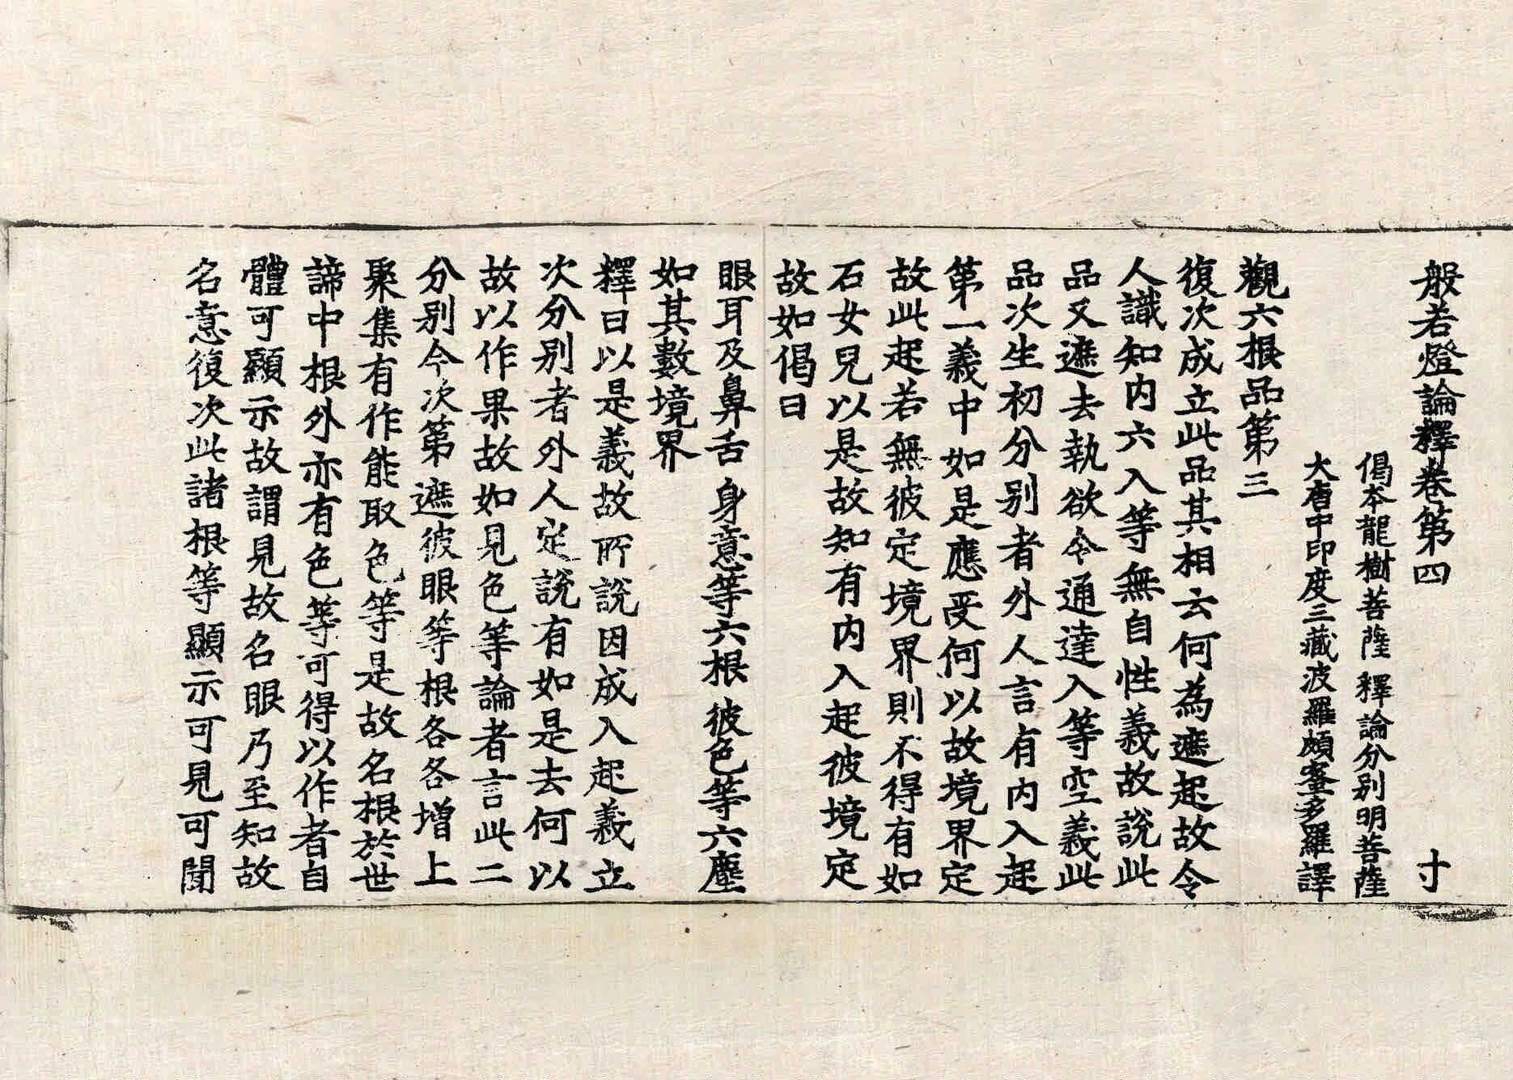 般若燈論釋卷第四 寸
偈本龍樹菩薩 釋論分別明菩薩
大唐中印度三藏波羅頗蜜多羅譯
觀六根品第三
復次成立此品其相云何為遮起故令
人識知内六入等無自性義故說此
品又遮去執欲令通達入等空義此
品次生初分別者外人言有内入起
第一義中如是應受何以故境界定
故此起若無彼定境界則不得有如
石女兒以是故知有内入起彼境定
故如偈曰
眼耳及鼻舌 身意等六根 彼色等六塵
如其數境界
釋曰以是義故所說因成入起義立
次分別者外人定說有如是去何以
故以作果故如見色等論者言此二
分別今次第遮彼眼等根各各增上
聚集有作能取色等是故名根於世
諦中根外亦有色等可得以作者自
體可顯示故謂見故名眼乃至知故
名意復次此諸根等顯示可見可聞